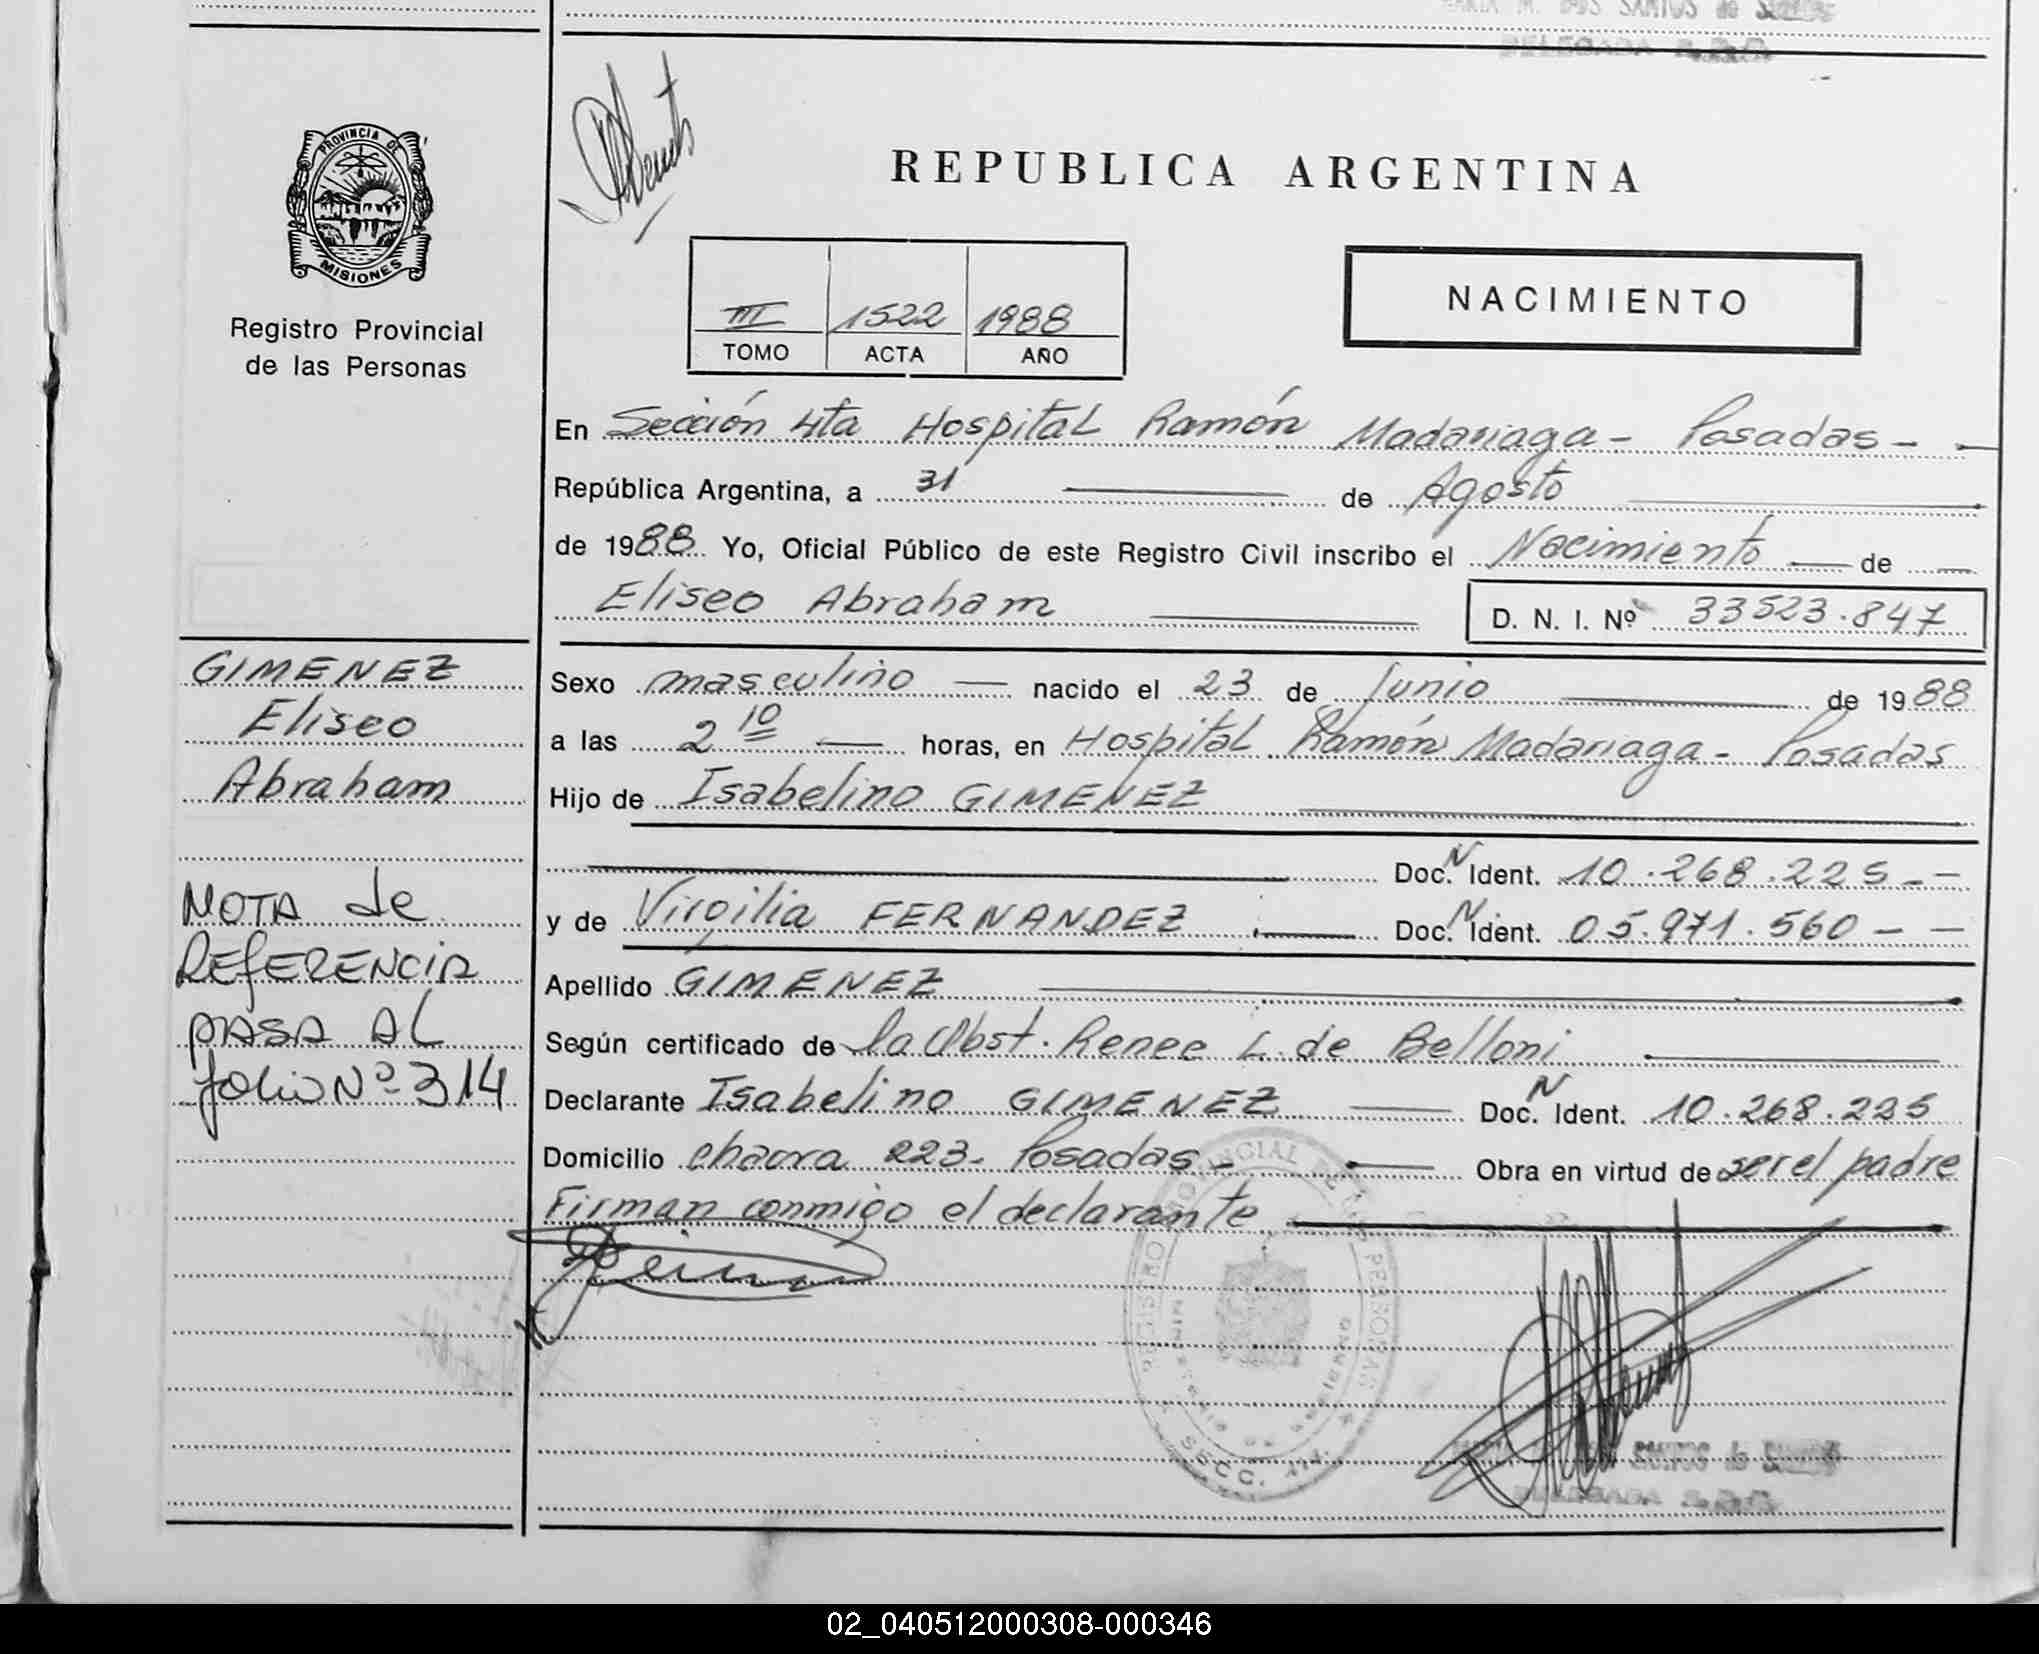 MARIA M. DOS SANTOS de
DELEGADA
PROVINCIA DE
MISIONES
Registro Provincial
de las Personas
REPUBLICA ARGENTINA
III 1522 1988
TOMO ACTA AÑO
NACIMIENTO
En Sección 4ta Hospital Ramón Madariaga - Posadas - -
República Argentina, a 31 de Agosto
de 1988 Yo, Oficial Público de este Registro Civil inscribo el Nacimiento de
Eliseo Abraham D. N. I. Nº 33523.847
GIMENEZ
Eliseo
Abraham
NOTA de
REFERENCIA
PASA AL
folio Nº 314
Sexo masculino nacido el 23 de Junio de 1988
a las 2 10 horas, en Hospital Ramón Madariaga - Posadas
Hijo de Isabelino GIMENEZ
Doc. N Ident. 10.268.225 - -
y de Virgilia FERNANDEZ Doc. N Ident. 05.971.560 - -
Apellido GIMENEZ
Según certificado de la Obst. Renee L. de Belloni
Declarante Isabelino GIMENEZ Doc. N Ident. 10.268.225
Domicilio chacra 223 - Posadas - Obra en virtud de ser el padre
Firman conmigo el declarante
REGISTRO PROVINCIAL DE LAS PERSONAS
MINISTERIO DE GOBIERNO
SECC.
SANTOS de
02_040512000308-000346